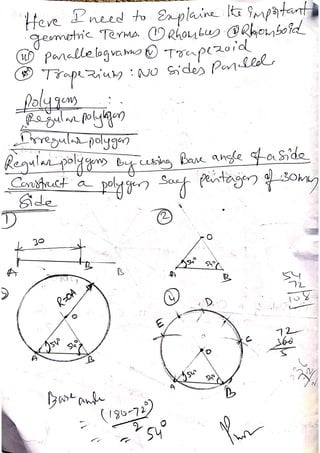 Here I need to Explaine Its Important
geometric Terms (i) Rhombus (ii) Rhomboid
(iii) Parallelograms (iv) Trapezoid
(v) Trapezium : No Sides Parallel
Polygons :
Regular polygon
Irregular polygon
Regular polygons by using Base angle of a side
Construct a polygon say pentagon of 30mm
Side
1)
30
A B B
②
O
54° 54°
A B
R=OA
O
54° 54°
A B
④
D
E C
O
54° 54°
A B
54
72
108
72
360
5
Base angle
= (180-72°)
2
= 54°